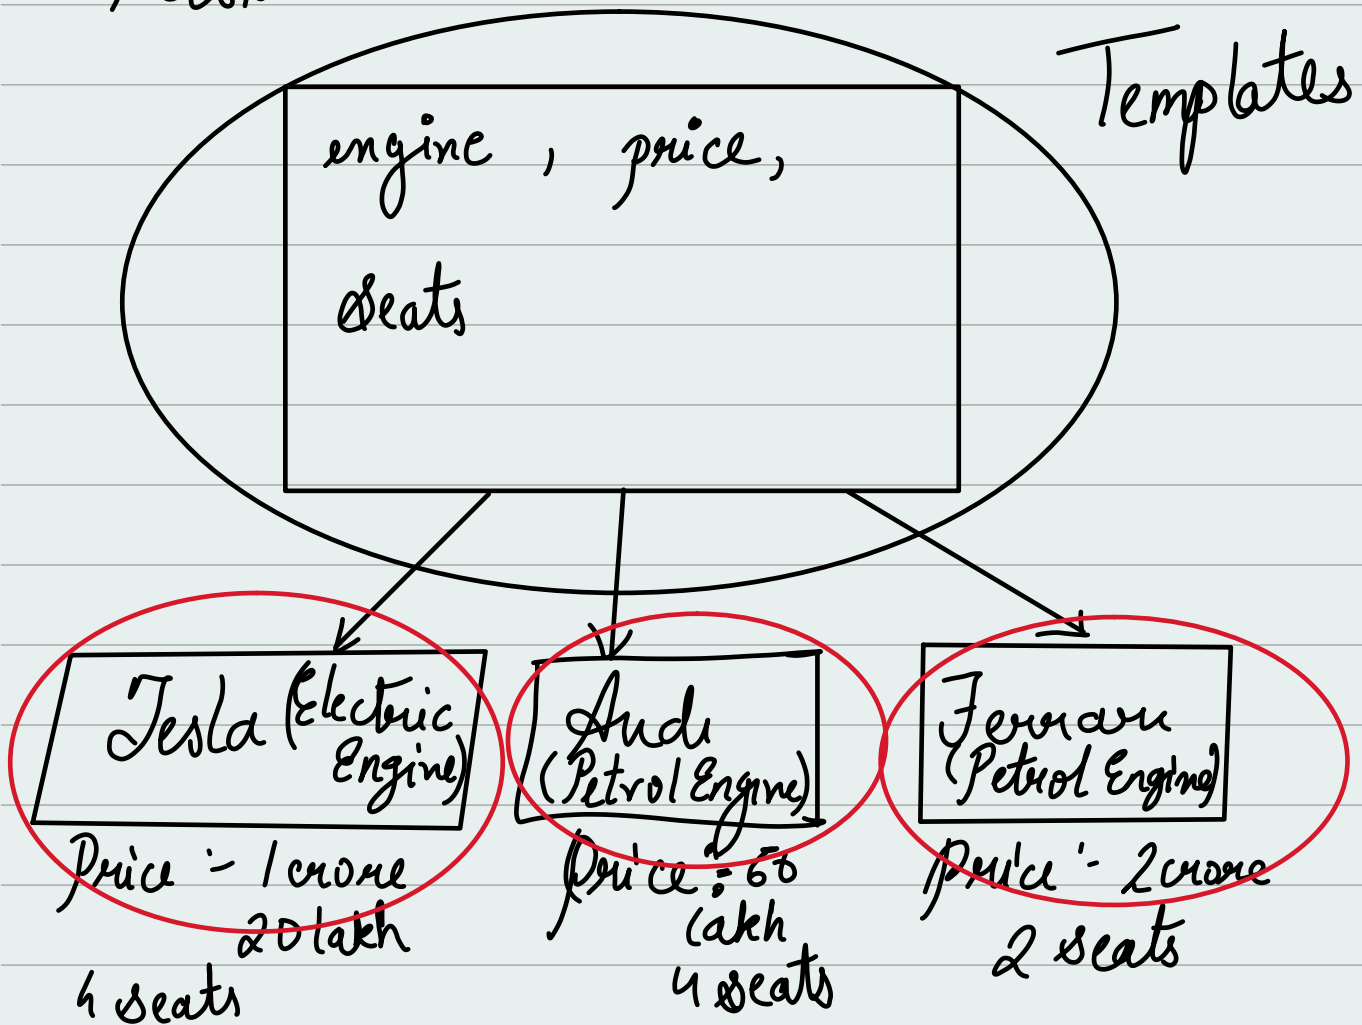 Templates
engine , price,
seats
Tesla (Electric Engine)
Price :- 1 crore
20 lakh
4 seats
Audi
(Petrol Engine)
Price :
lakh
4 seats
Ferrari
(Petrol Engine)
Price :- 2 crore
2 seats